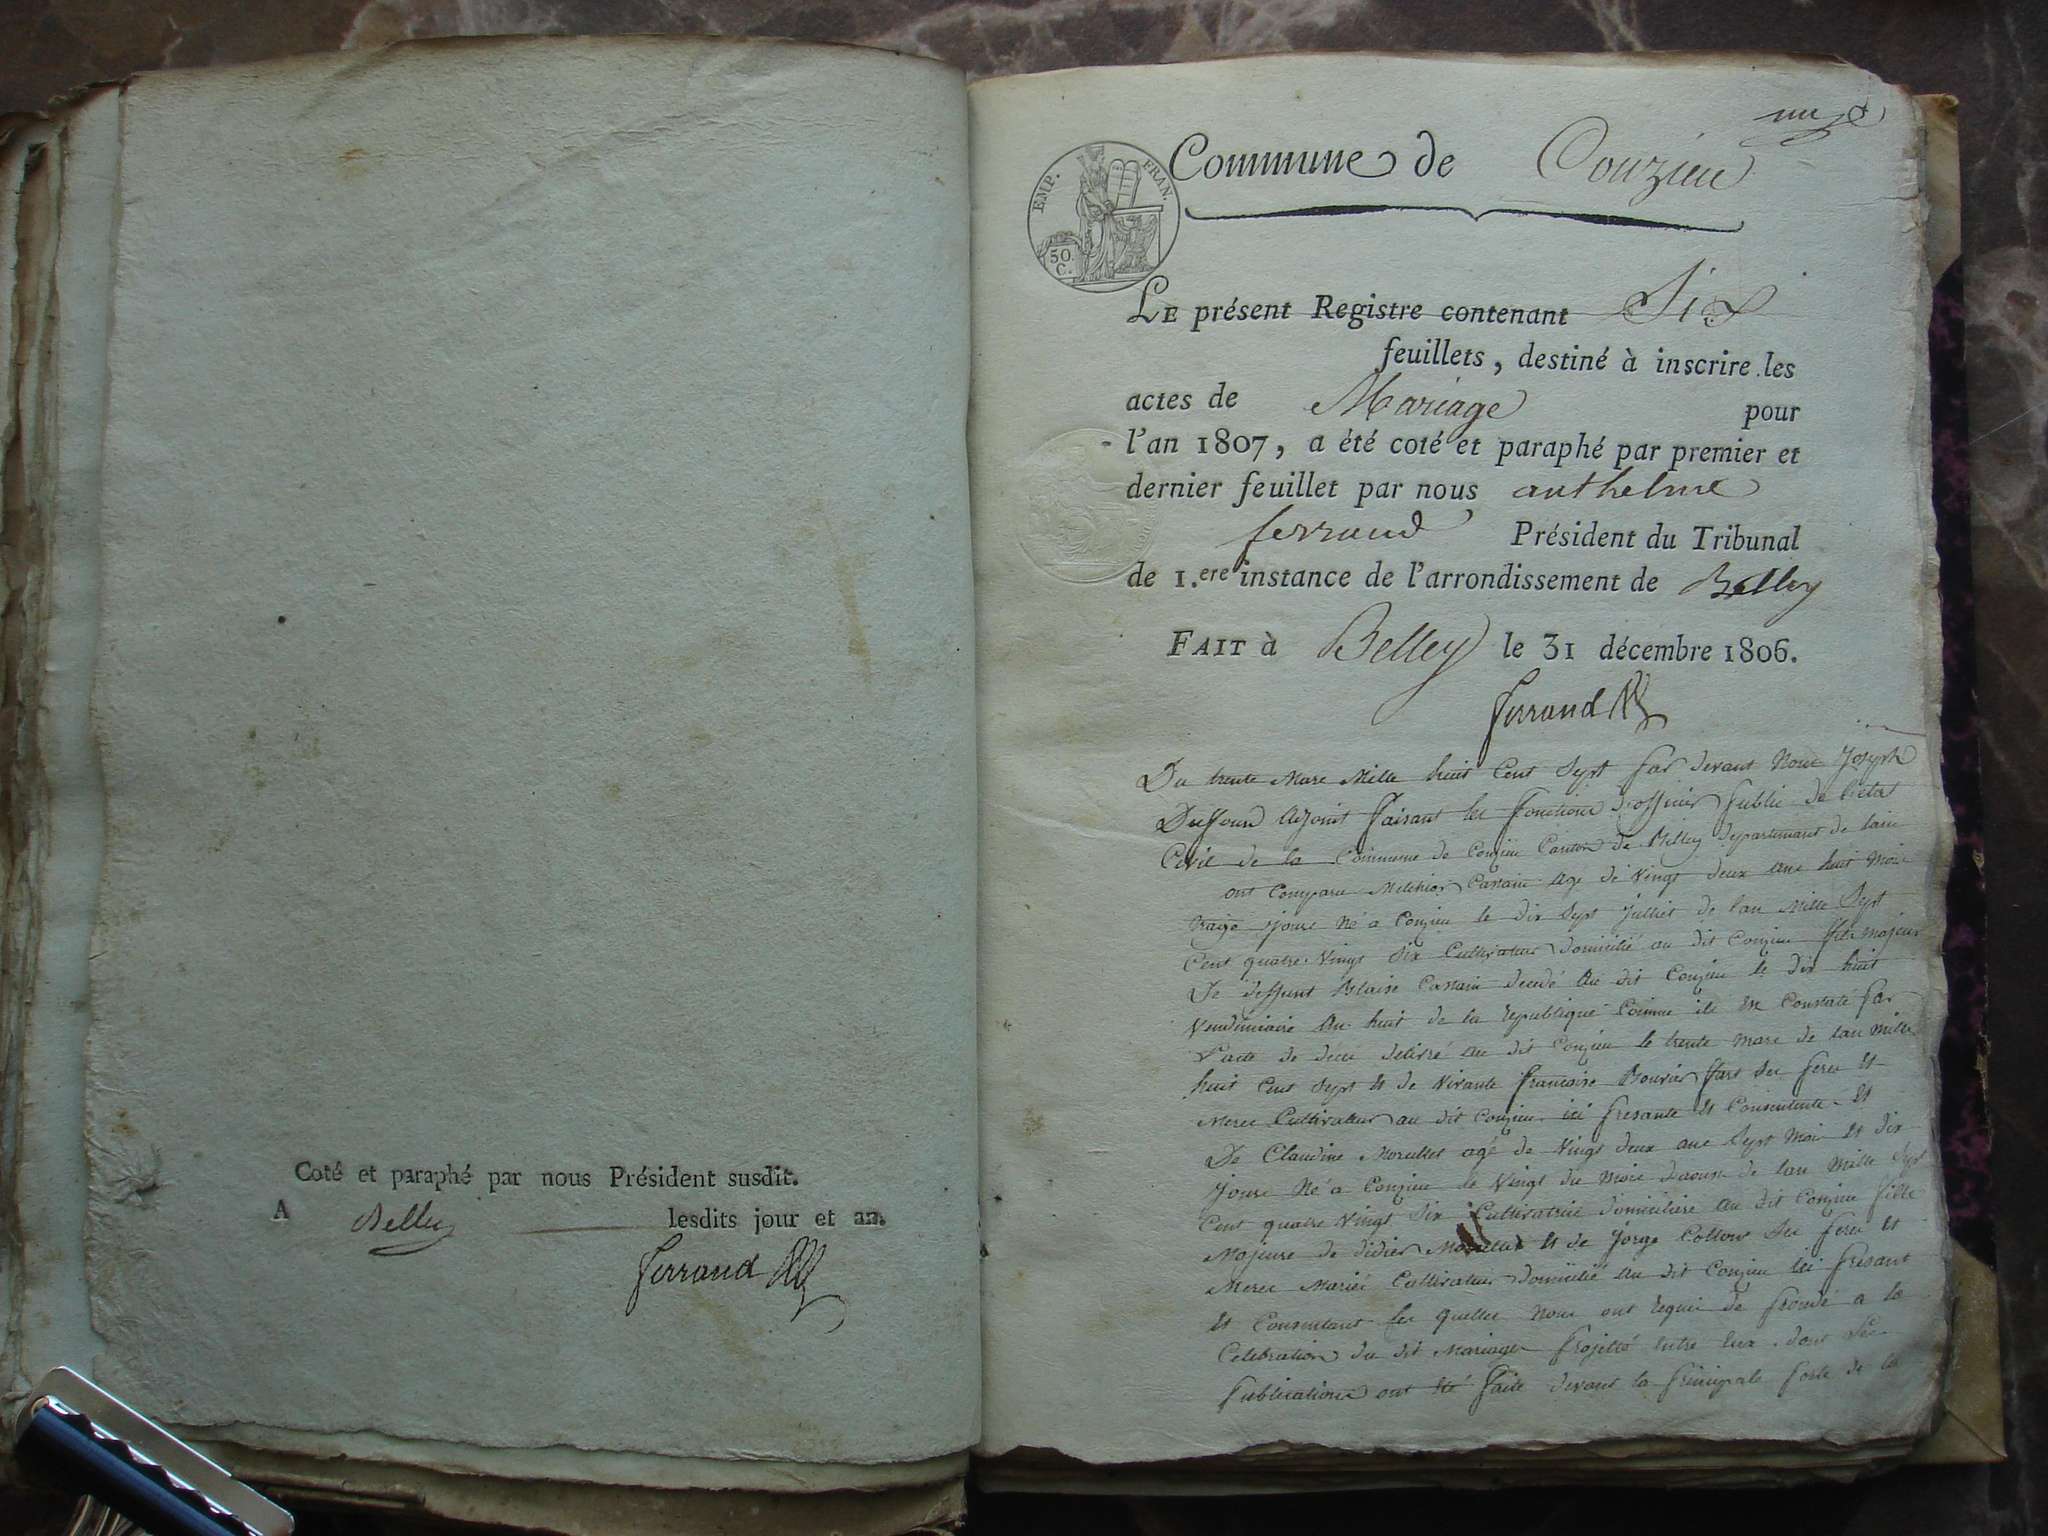 Coté et paraphé par nous Président susdit.
A Belley lesdits jour et an.
Ferrand
EMP. FRAN.
50 C.
Commune de Conzieu
LE présent Registre contenant Six
feuillets, destiné à inscrire les
actes de Mariage pour
l'an 1807, a été coté et paraphé par premier et
dernier feuillet par nous anthelme
ferrand Président du Tribunal
de 1.ere instance de l'arrondissement de Belley
FAIT à Belley le 31 décembre 1806.
Ferrand
Du trente Mars Mille huit Cent Sept par devant Nous Joseph
Duffour Adjoint faisant les fonctions d'officier public de l'etat
Civil de la Commune de Conzieu Canton de Belley departement de lain
ont Comparu Melchior age de Vingt deux ans huit Mois
jours Né a Conzieu le dix Sept Juillet de lan Mille Sept
Cent quatre Vingt Cultivateur domicilié au dit Conzieu fils majeur
De deffunt Blaise decedé au dit Conzieu le dix huit
Vendemiaire an huit de la republique Comme ils est Constaté par
l'acte de deces delivré au dit Conzieu le trente mars de lan mille
huit Cent Sept et de Vivante francoise Bouvier
Meres Cultivateur au dit Conzieu ici presante et Consentente et
De Claudine agé de Vingt deux ans Sept Mois et dix
jours Né a Conzieu le Vingt du Mois daoust de lan Mille Sept
Cent quatre Vingt Cultivatrice domiciliere au dit Conzieu fille
Majeure de didier et de
Meres Mariés Cultivateur domicilié au dit Conzieu ici presant
et Consentant les quelles Nous ont requis de a la
Celebration du dit Mariage projetté entre eux dont les
publications ont été faite devant la principale porte de la